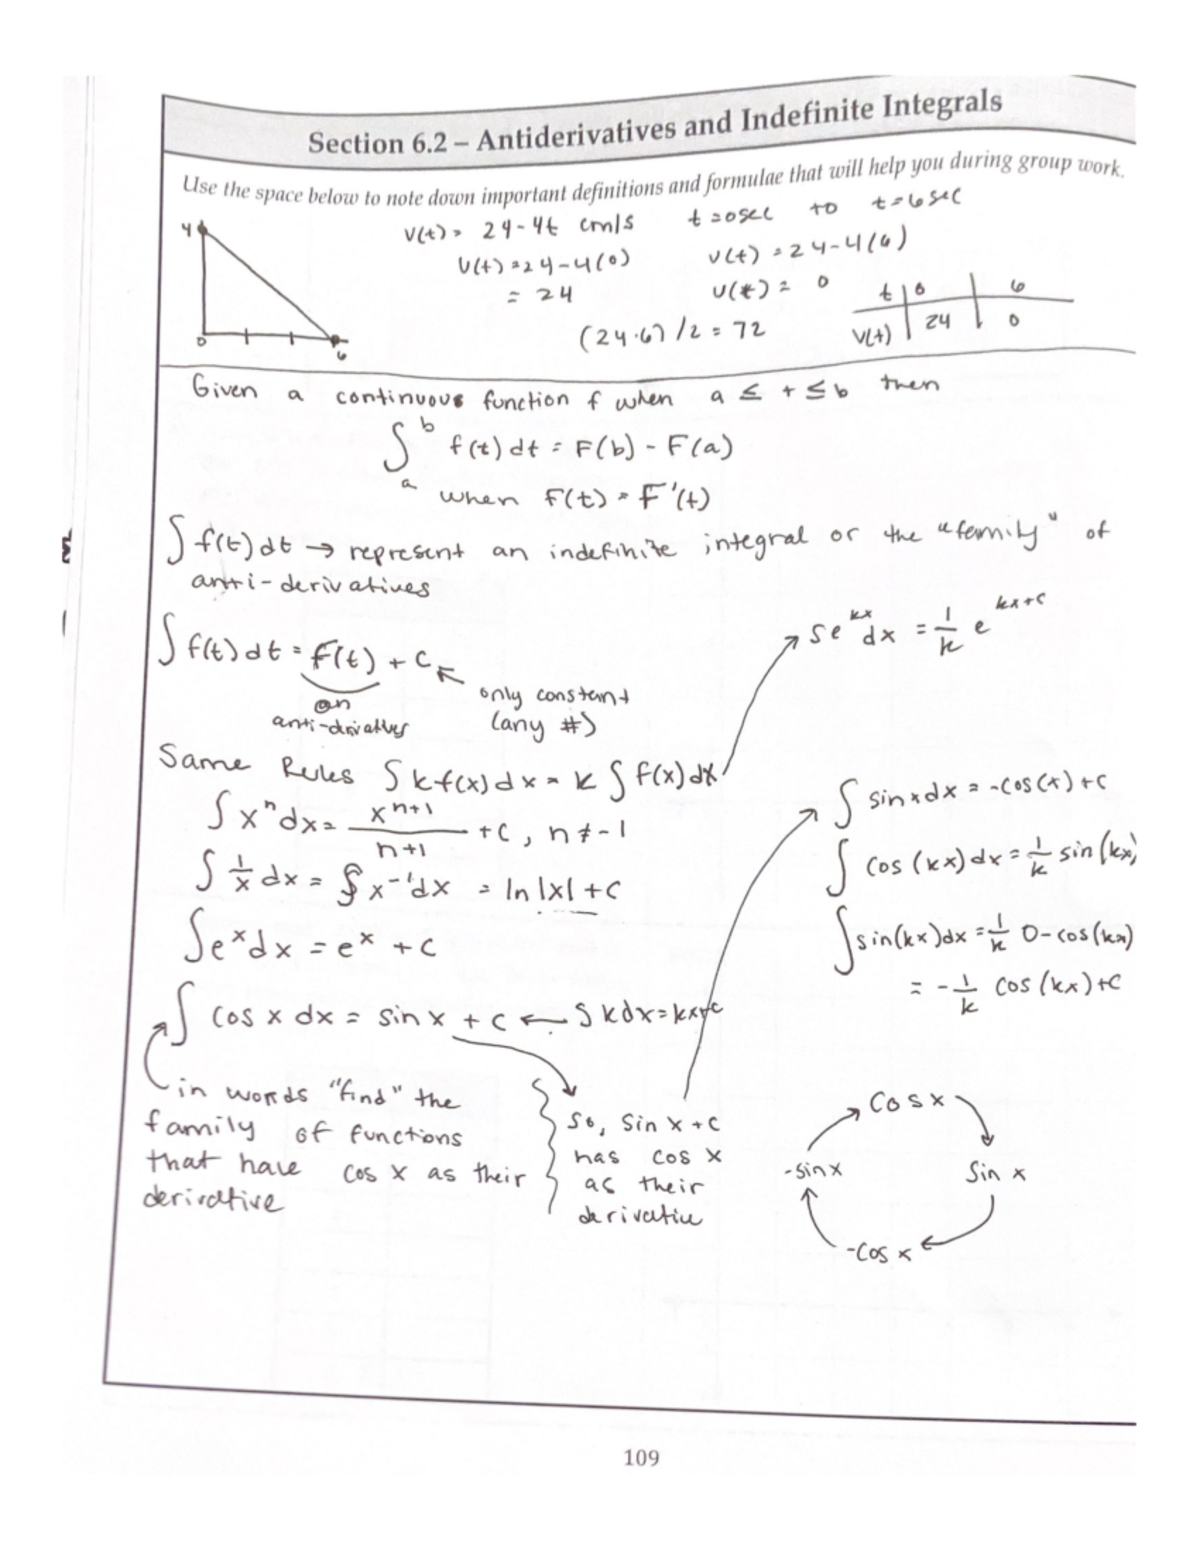 Section 6.2 – Antiderivatives and Indefinite Integrals
Use the space below to note down important definitions and formulae that will help you during group work.
4
0
6
v(t) = 24-4t cm/s t=0sec to t=6sec
v(t) = 24-4(0)
= 24
v(t) = 24-4(6)
v(t) = 0
(24·6)/2 = 72
t | 0 | 6
v(t) | 24 | 0
Given a continuous function f when a ≤ t ≤ b then
∫_a^b f(t) dt = F(b) - F(a)
when F(t) = F'(t)
∫ f(t) dt → represent an indefinite integral or the "family" of
anti-derivatives
∫ f(t) dt = F(t) + C
an
anti-drivatives
only constant
(any #)
∫e^kx dx = 1/k e^kx+c
Same Rules ∫ k f(x) dx = k ∫ f(x) dx
∫ x^n dx = x^n+1/n+1 + C, n ≠ -1
∫ 1/x dx = ∫ x^-1 dx = ln |x| + C
∫e^x dx = e^x + C
∫ cos x dx = sin x + C ← ∫ k dx = kx+c
in words "find" the
family of functions
that have cos x as their
derivative
so, sin x + C
has cos x
as their
derivative
∫ sin x dx = -cos(x) + C
∫ cos (kx) dx = 1/k sin (kx)
∫ sin(kx) dx = 1/k 0-cos(kx)
= -1/k cos (kx)+C
cos x
-sin x
sin x
-cos x
109